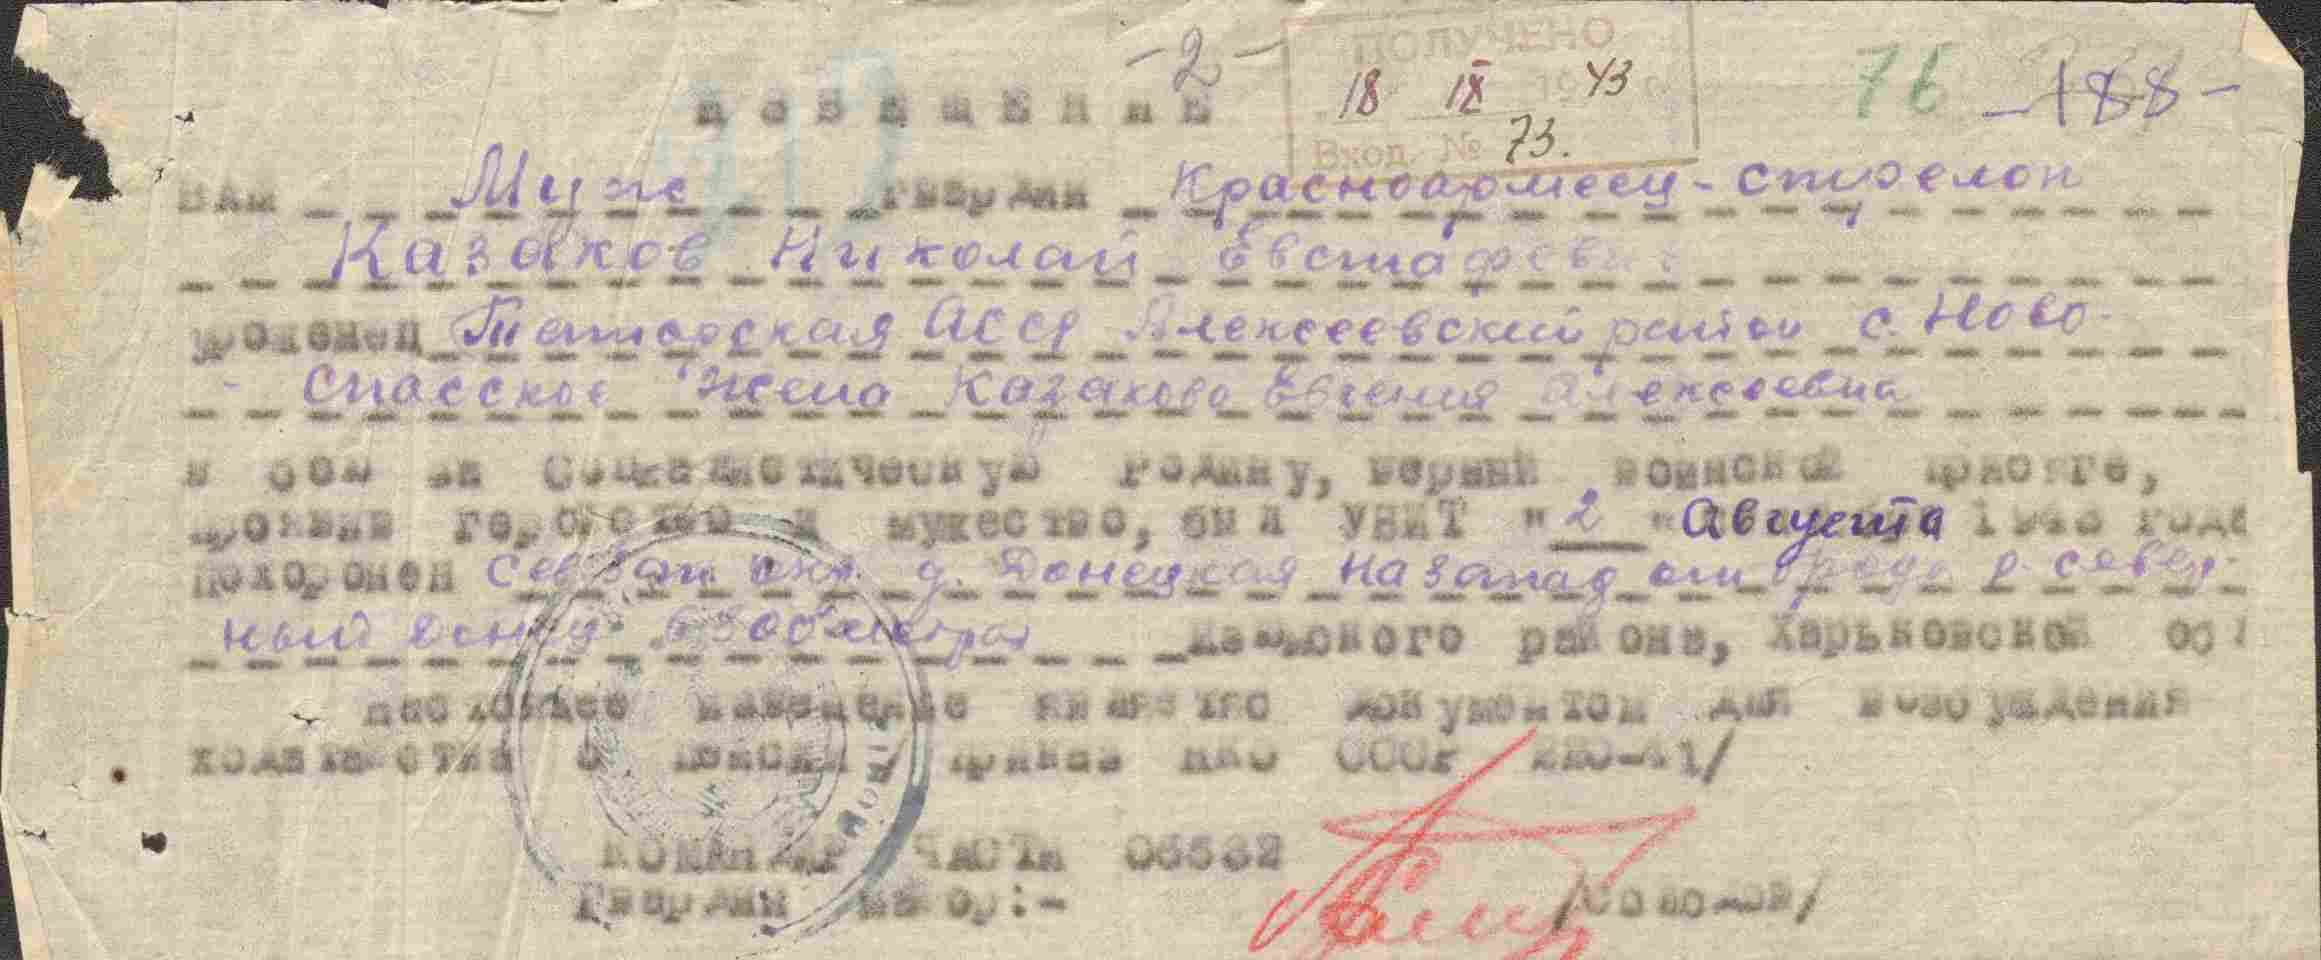 -2-
ПОЛУЧЕНО
18 IX 1943
Вход. № 73.
76 -188-
ИЗВЕЩЕНИЕ
Ваш Муж гвардии Красноармеец-стрелок
Казаков Николай Евстафев
уроженец Татарская АССР Алексеевский район с. Ново-
- Спасское Жена Казакова Евгения Алексеевна
в бою за Социалистическую Родину, верный воинской присяге,
проявив геройство и мужество, был УБИТ "2" Августа 1943 года
похоронен д. Донецкая на запад от р. север-
ный Донец метрах района, Харьковской
настоящее извещение является документом для возбуждения
ходатайства о пенсии /приказ НКО СССР
КОМАНДИР ЧАСТИ
Гвардии майор:-